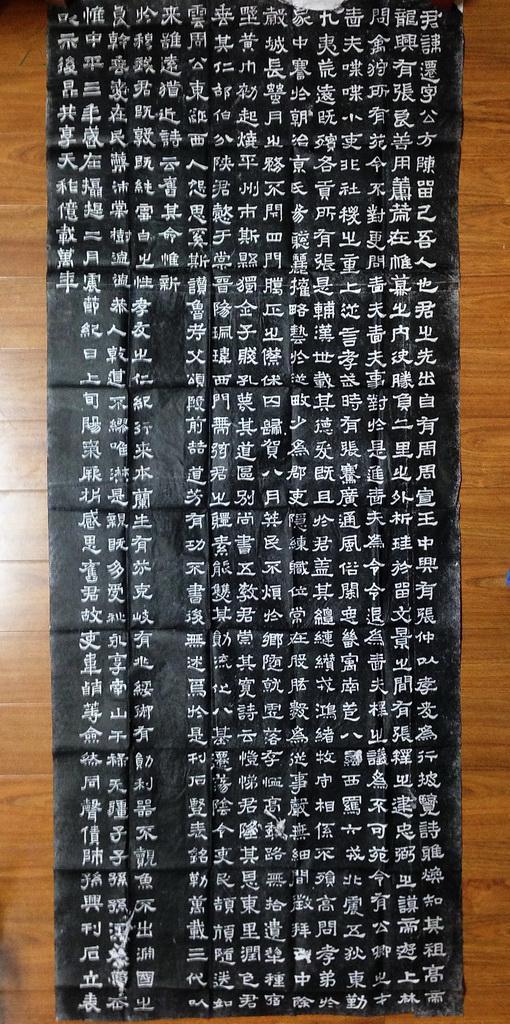 君諱遷字公方陳留己吾人也君之先出自有周周宣王中興有張仲以孝友為行披覽詩雅煥知其祖高帝
龍興有張良善用籌策在帷幕之內決勝負千里之外析珪於留文景之間有張釋之建忠弼之謨帝遊上林
問禽狩所有苑令不對更問嗇夫嗇夫事對於是進嗇夫為令令退為嗇夫釋之議為不可苑令有公卿之才
嗇夫喋喋小吏非社稷之重上從言孝武時有張騫廣通風俗開定畿寓南苞八蠻西羈六戎北震五狄東勤
九夷荒遠既殯各貢所有張是輔漢世載其德爰既且於君蓋其纏縺纘戎鴻緒牧守相係不殞高問孝弟於
家中謇於朝治京氏易聰麗權略藝於從畋少為郡吏隱練職位常在股肱數為從事聲無細聞徵拜郎中除
穀城長蠶月之務不閉四門臘正之僚休囚歸賀八月筭民不煩於鄉隨就虛落存恤高年路無拾遺犁種宿
野黃巾初起燒平城市斯縣獨全子賤孔蔑其道區別尚書五教君崇其寬詩云愷悌君隆其恩東里潤色君
垂其仁邵伯分陝君懿于棠晉陽珮瑋西門帶弦君之體素能雙其勛流化八基遷蕩陰令吏民頡頏隨送如
雲周公東征西人怨思奚斯讚魯考父頌殷前喆遺芳有功不書後無述焉於是刊石豎表銘勒萬載三代以
來雖遠猶近詩云舊其命惟新
於穆我君既敦既純雪白之性孝友之仁紀行來本蘭生有芬克岐有兆綏御有勛利器不覿魚不出淵國之
良幹垂愛在民蔽沛棠樹溫溫恭人乾道不繆唯淑是親既多受祉永享南山干祿無疆子子孫孫
惟中平三年歲在攝提二月震節紀日上旬陽氣厥析感思舊君故吏韋萌等僉然同聲賃師孫興刊石立表
以示後昆共享天祚億載萬年